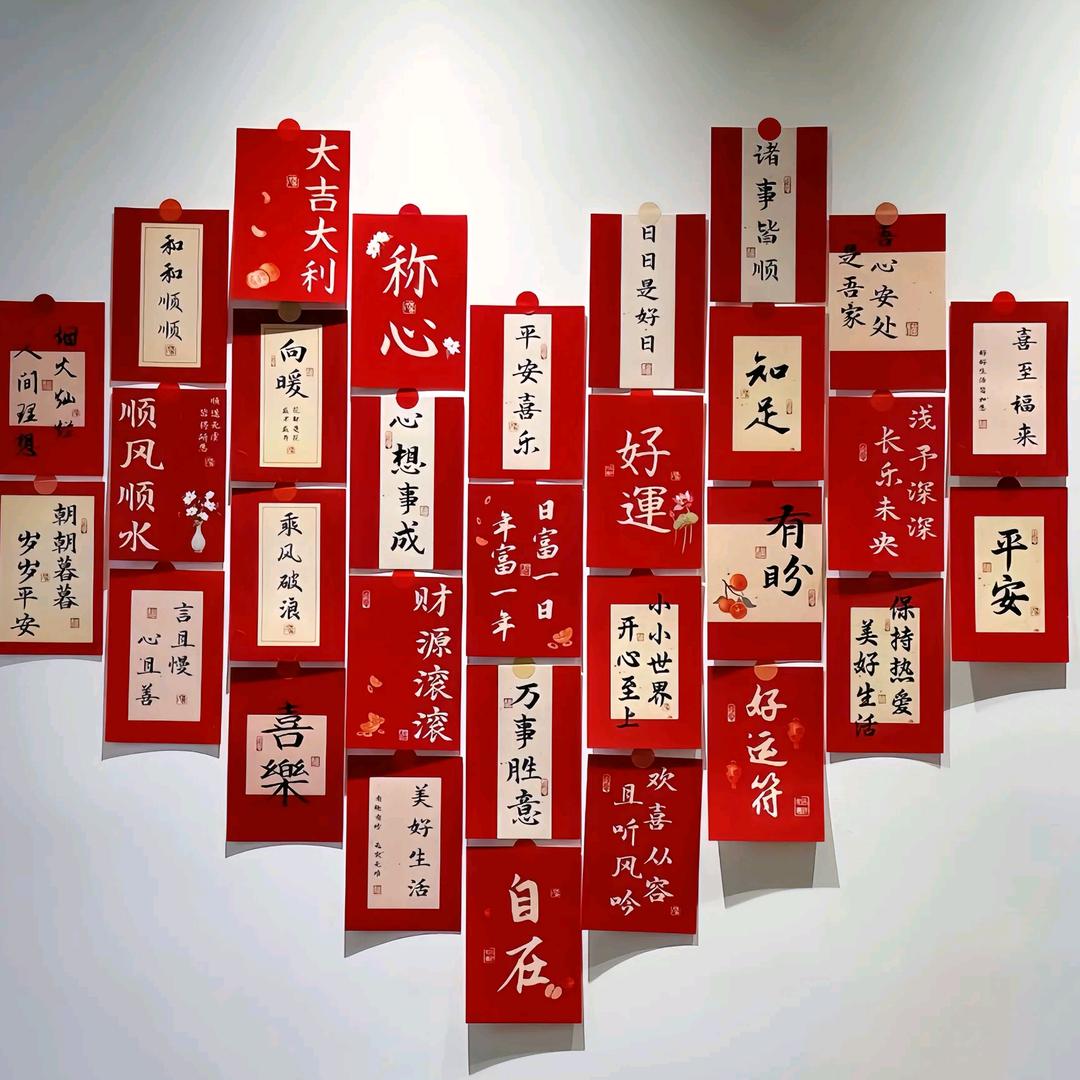 烟火灿烂
人间理想
朝朝暮暮
岁岁平安
和和顺顺
顺风顺水
顺遂无虞
皆得所愿
言且慢
心且善
大吉大利
向暖
乘风破浪
喜樂
称心
心想事成
财源滚滚
美好生活
平安喜乐
日富一日
年富一年
万事胜意
自在
日日是好日
好運
小小世界
开心至上
欢喜从容
且听风吟
诸事皆顺
知足
有盼
好运符
吾心安处
是吾家
浅予深深
长乐未央
保持热爱
美好生活
喜至福来
好好生活皆如愿
平安